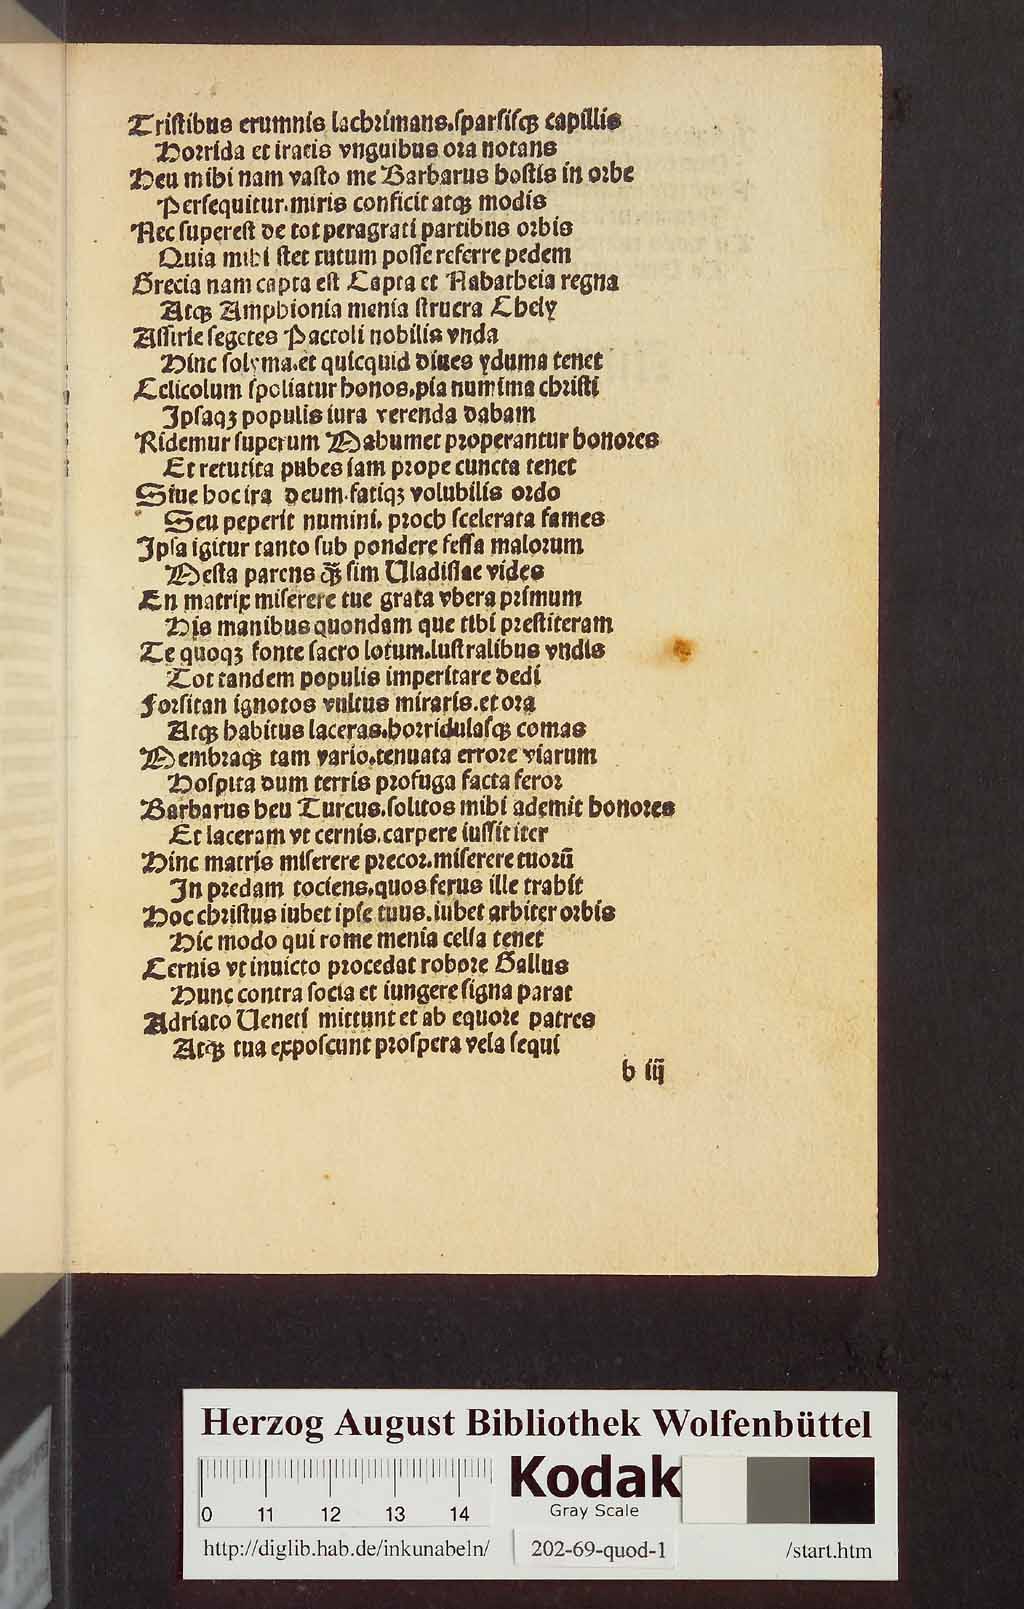 Tristibus erumnis lachrimans.sparsisqꝫ capillis
Horrida et iratis vnguibus ora notans
Heu mihi nam vasto me Barbarus hostis in orbe
Persequitur.miris conficit atqꝫ modis
Nec superest de tot peragrati partibus orbis
Quia mihi stet tutum posse referre pedem
Grecia nam capta est Capta et Nabatheia regna
Atqꝫ Amphionia menia structa Chely
Assirie segetes Pactoli nobilis vnda
Hinc solyma.et quicquid diues yduma tenet
Celicolum spoliatur honos.pia numima christi
Ipsaqꝫ populis iura verenda dabam
Ridemur superum Mahumet properantur honores
Et recutita pubes iam prope cuncta tenet
Siue hoc ira deum.fatiqꝫ volubilis ordo
Seu peperit numini. proch scelerata fames
Ipsa igitur tanto sub pondere fessa malorum
Mesta parens qͣꝫ sim Uladislae vides
En matrix miserere tue grata vbera primum
His manibus quondam que tibi prestiteram
Te quoqꝫ fonte sacro lotum.lustralibus vndis
Tot tandem populis imperitare dedi
Forsitan ignotos vultus miraris.et ora
Atqꝫ habitus laceras.horridulasqꝫ comas
Membraqꝫ tam vario.tenuata errore viarum
Hospita dum terris profuga facta feror
Barbarus heu Turcus.solitos mihi ademit honores
Et laceram vt cernis.carpere iussit iter
Hinc matris miserere precor.miserere tuorū
In predam tociens.quos ferus ille trahit
Hoc christus iubet ipse tuus.iubet arbiter orbis
Hic modo qui rome menia celsa tenet
Cernis vt inuicto procedat robore Gallus
Hunc contra socia et iungere signa parat
Adriato Ueneti mittunt et ab equore patres
Atqꝫ tua exposcunt prospera vela sequi
b iij
Herzog August Bibliothek Wolfenbüttel
Kodak
Gray Scale
0 11 12 13 14
http://diglib.hab.de/inkunabeln/ 202-69-quod-1 /start.htm